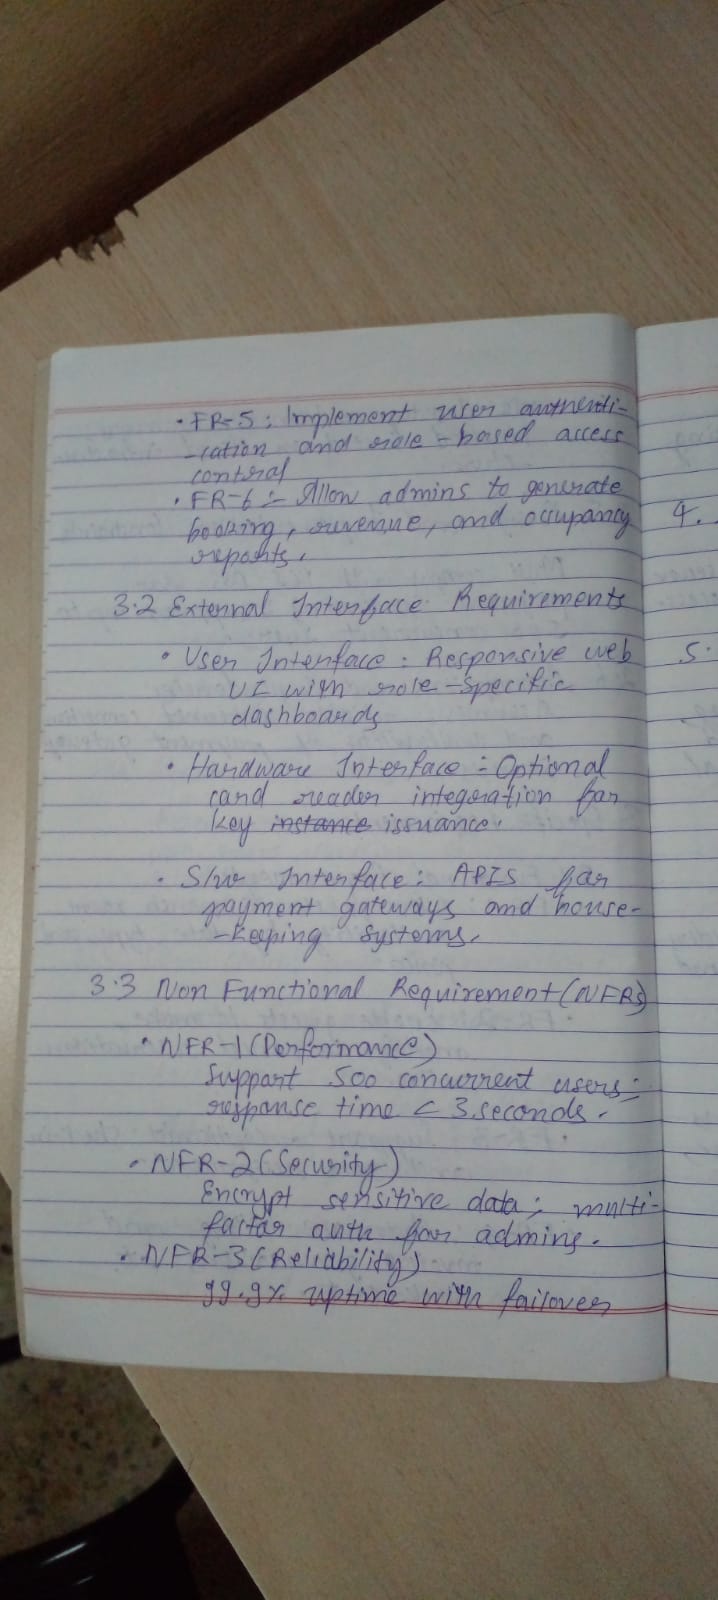 • FR-5: Implement user authenti-
-cation and role-based access
control
• FR-6:- Allow admins to generate
booking, revenue, and occupancy
reports.
3.2 External Interface Requirements
• User Interface: Responsive web
UI with role-specific
dashboards
• Hardware Interface:- Optional
card reader integration for
key instance issuance.
• S/w Interface: APIS for
payment gateways and house-
-keeping systems.
3.3 Non Functional Requirement (NFRs)
• NFR-1 (Performance)
Support 500 concurrent users;
response time < 3 seconds.
• NFR-2 (Security)
Encrypt sensitive data; multi-
factor auth for admins.
• NFR-3 (Reliability)
99.9% uptime with failover
4.
5.